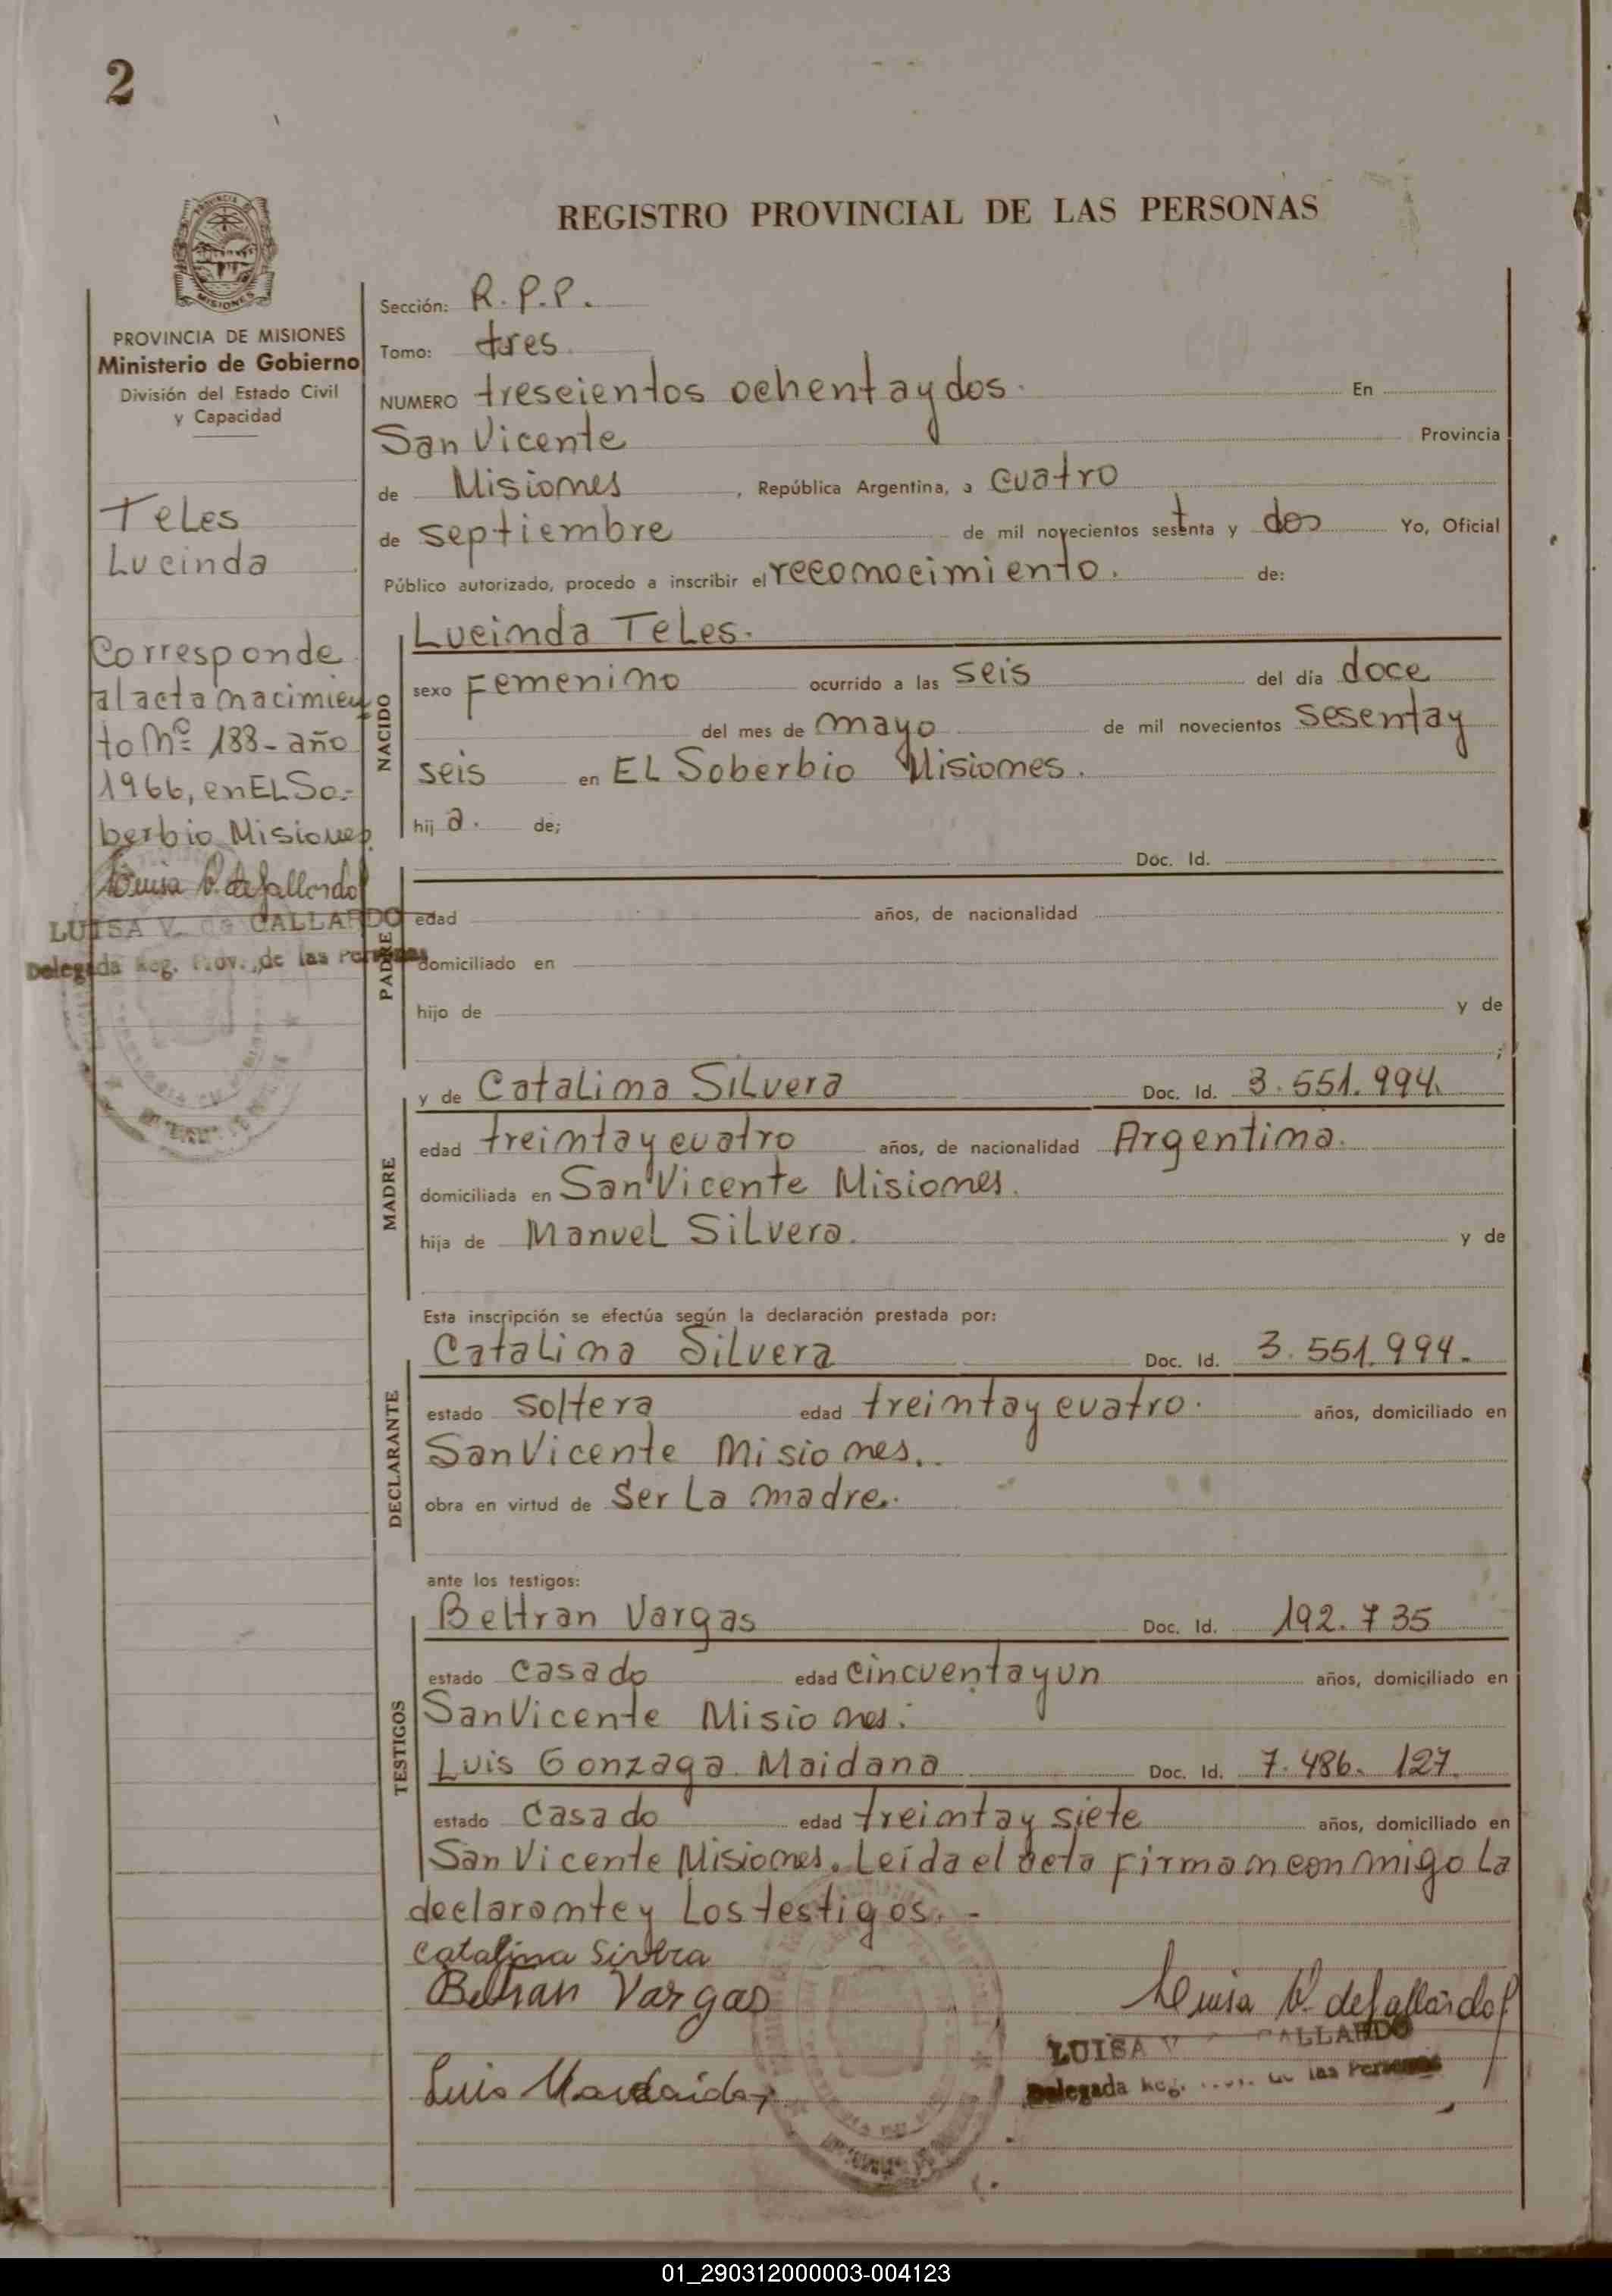 2
REGISTRO PROVINCIAL DE LAS PERSONAS
PROVINCIA DE MISIONES
MISIONES
PROVINCIA DE MISIONES
Ministerio de Gobierno
División del Estado Civil
y Capacidad
Teles
Lucinda
Corresponde
al acta nacimien
to Nº 188 - año
1966, en EL So-
berbio Misiones
Luisa V. de Gallardo
LUISA V. de GALLARDO
Delegada Reg. Prov. de las Personas
Sección: R.P.P.
Tomo: tres
NUMERO trescientos ochenta y dos. En
San Vicente Provincia
de Misiones, República Argentina, a cuatro
de septiembre de mil novecientos setenta y dos Yo, Oficial
Público autorizado, procedo a inscribir el reconocimiento. de:
NACIDO
Lucinda Teles.
sexo Femenino ocurrido a las seis del día doce
del mes de mayo de mil novecientos sesenta y
seis en EL Soberbio Misiones.
hij a. de;
PADRE
Doc. Id.
edad años, de nacionalidad
domiciliado en
hijo de y de
;
MADRE
y de Catalina Silvera Doc. Id. 3.551.994.
edad treinta y cuatro años, de nacionalidad Argentina.
domiciliada en San Vicente Misiones.
hija de Manuel Silvera. y de
Esta inscripción se efectúa según la declaración prestada por:
DECLARANTE
Catalina Silvera Doc. Id. 3.551.994.
estado soltera edad treinta y cuatro. años, domiciliado en
San Vicente Misiones.
obra en virtud de Ser La madre.
ante los testigos:
TESTIGOS
Beltran Vargas Doc. Id. 192.735
estado casado edad cincuenta y un años, domiciliado en
San Vicente Misiones.
Luis Gonzaga Maidana Doc. Id. 7.486.127.
estado casado edad treinta y siete años, domiciliado en
San Vicente Misiones. Leída el acta firman conmigo La
declarante y Los testigos. -
Catalina
Beltran Vargas
Luis
Luisa V. de Gallardo
LUISA V GALLARDO
Delegada Reg. de las Personas
01_290312000003-004123